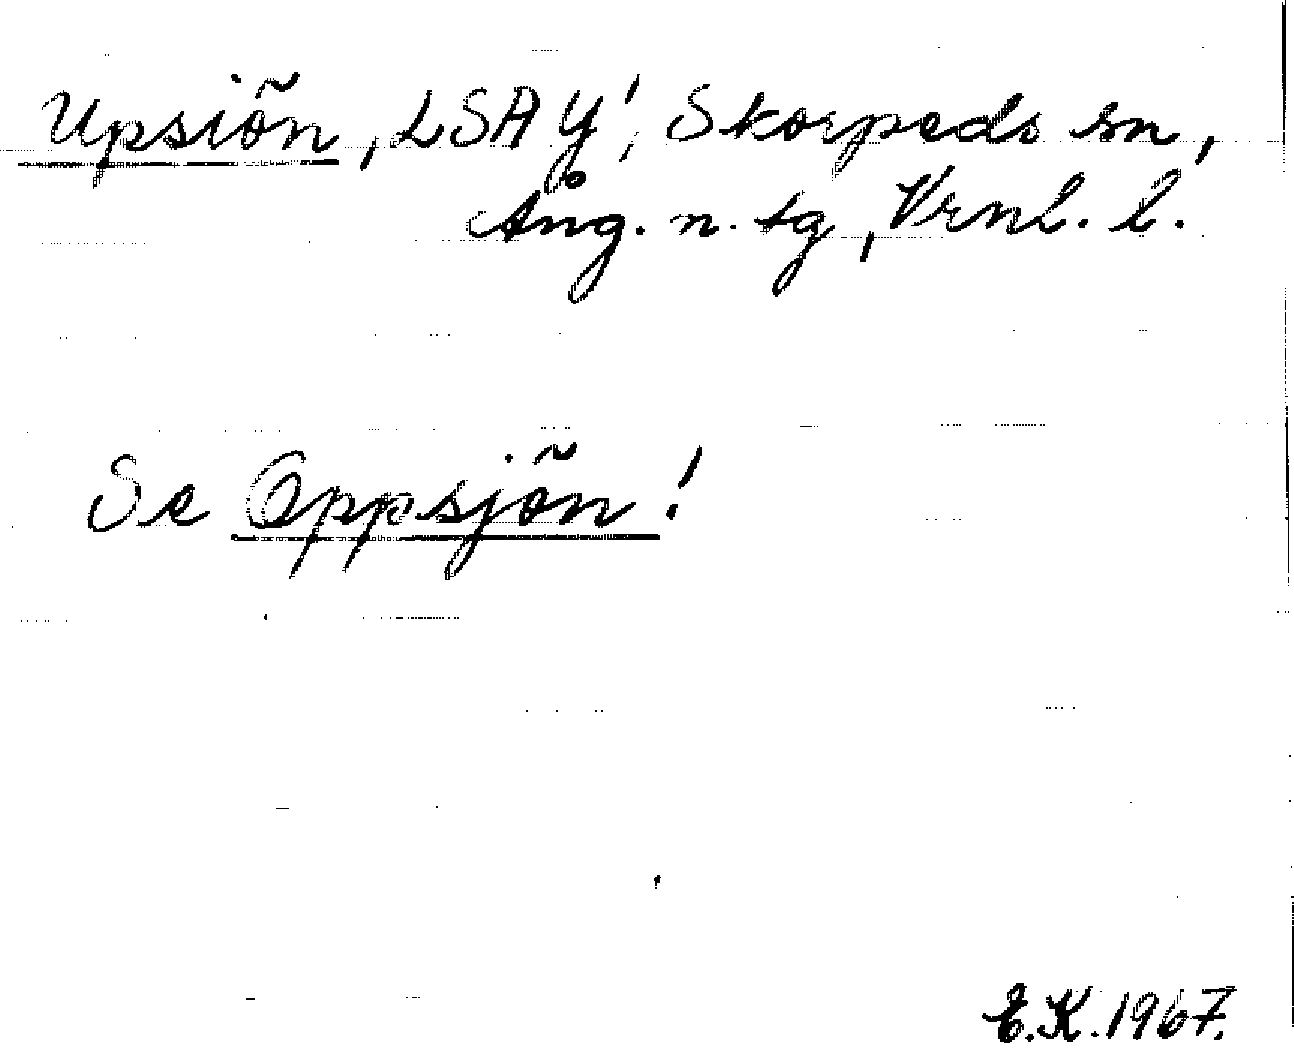 Upsiön, LSA Y!, Skorpeds sn,
Ång. n. tg, Vrnl. l.
Se Oppsjön!
E.K. 1967.